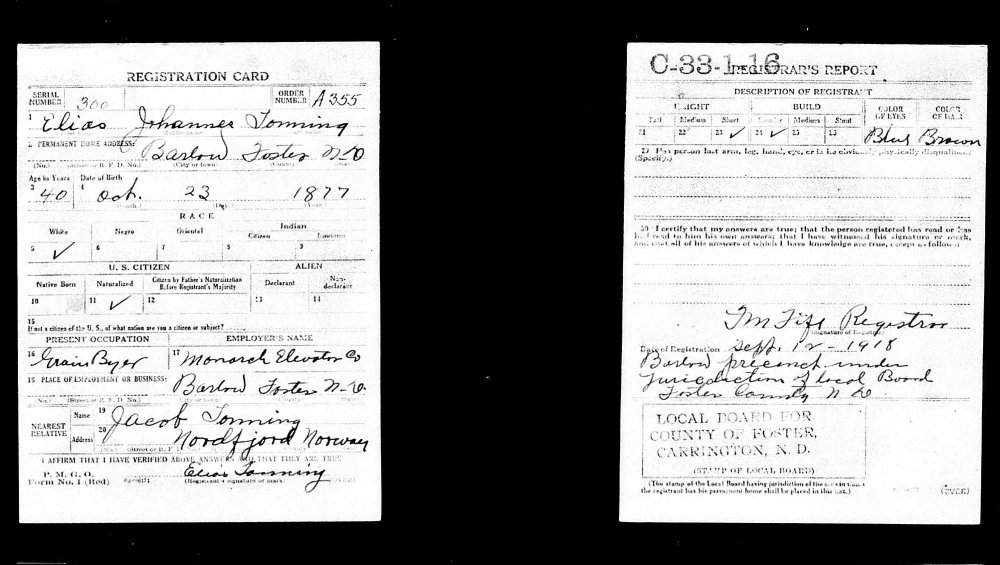 REGISTRATION CARD
SERIAL NUMBER 300 ORDER NUMBER A 355
1 Elias Johannes Tonning
2 PERMANENT HOME ADDRESS: Barlow Foster N-D
(No.) (Street or R. F. D. No.) (City or town) (County) (State)
Age in Years Date of Birth
3 40 4 Oct. 23 1877
(Month.) (Day.) (Year.)
RACE
White Negro Oriental Indian
Citizen Noncitizen
5 ✓ 6 7 8 9
U. S. CITIZEN ALIEN
Native Born Naturalized Citizen by Father's Naturalization Before Registrant's Majority Declarant Non-declarant
10 11 ✓ 12 13 14
15
If not a citizen of the U. S., of what nation are you a citizen or subject?
PRESENT OCCUPATION EMPLOYER'S NAME
16 Grain Byer 17 Monarch Elevator Co
18 PLACE OF EMPLOYMENT OR BUSINESS: Barlow Foster N-D.
(No.) (Street or R. F. D. No.) (City or town) (County) (State)
NEAREST RELATIVE Name 19 Jacob Tonning
Address 20 Nordfjord Norway
(No.) (Street or R. F. D.
I AFFIRM THAT I HAVE VERIFIED ABOVE ANSWERS AND THAT THEY ARE TRUE
P. M. G. O.
Form No. 1 (Red) Elias Tonning
(Registrant's signature or mark)
C-33-1-16 REGISTRAR'S REPORT
DESCRIPTION OF REGISTRANT
HEIGHT BUILD COLOR OF EYES COLOR OF HAIR
Tall Medium Short Slender Medium Stout
21 22 23 ✓ 24 ✓ 25 26 Blue Brown
29 Has person lost arm, leg, hand, eye, or is he obviously physically disqualified?
(Specify.)
30 I certify that my answers are true; that the person registered has read or has
had read to him his own answers; that I have witnessed his signature or mark,
and that all of his answers of which I have knowledge are true, except as follows:
Registrar
(Signature of Registrar)
Date of Registration Sept. 12 - 1918
Barlow precinct under
jurisdiction of local Board
Foster County N D
LOCAL BOARD FOR
COUNTY OF FOSTER,
CARRINGTON, N. D.
(STAMP OF LOCAL BOARD)
(The stamp of the Local Board having jurisdiction of the area in which
the registrant has his permanent home shall be placed in this box.)
(OVER)